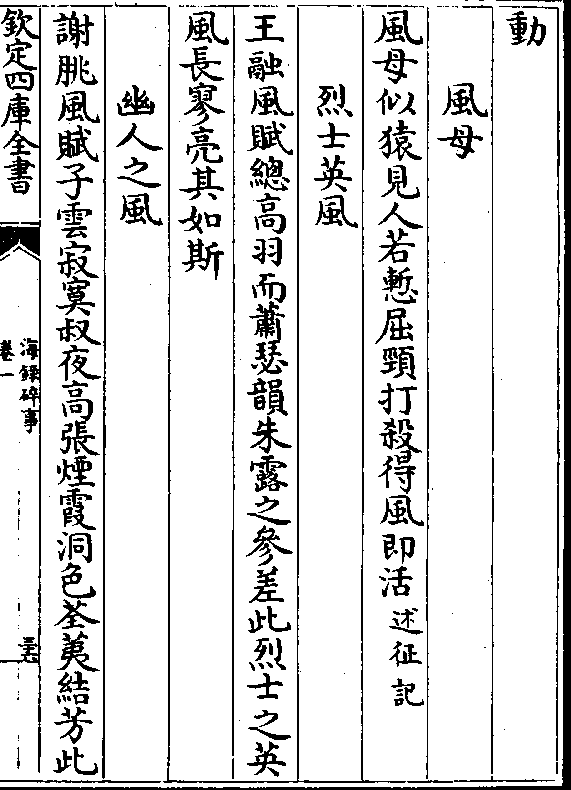 動
風母
風母似猿見人若慙屈頸打殺得風即活述征記
烈士英風
王融風賦總高羽而蕭瑟韻朱露之參差此烈士之英
風長寥亮其如斯
幽人之風
謝朓風賦子雲寂寞叔夜高張煙霞洞色荃荑結芳此
欽定四庫全書
海錄碎事
卷一
三十六